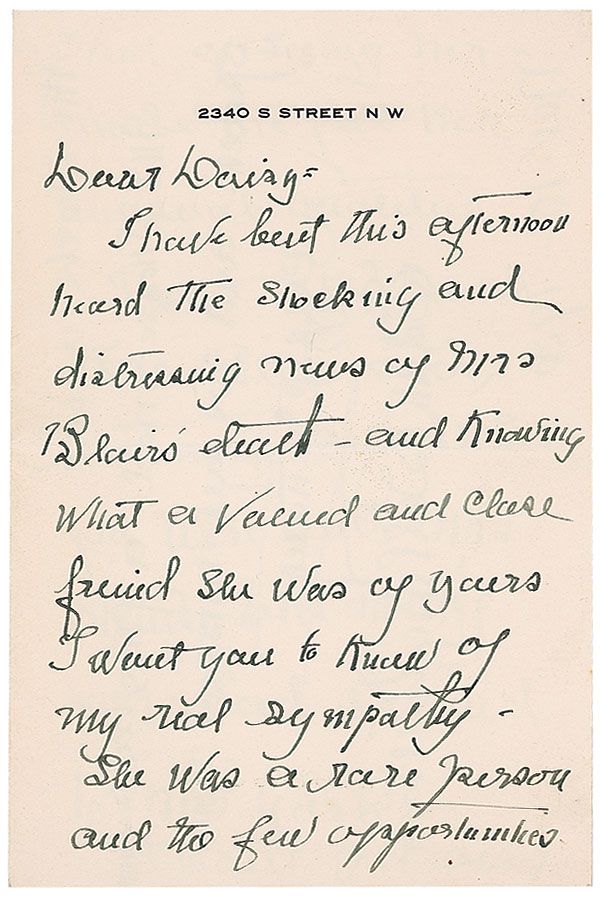 2340 S STREET N W
Dear Daisy =
I have but this afternoon
heard the shocking and
distressing news of Mrs
Blairs' death - and knowing
what a valued and close
freind she was of yours
I want you to know of
my real sympathy -
She was a rare person
and the few opportunities